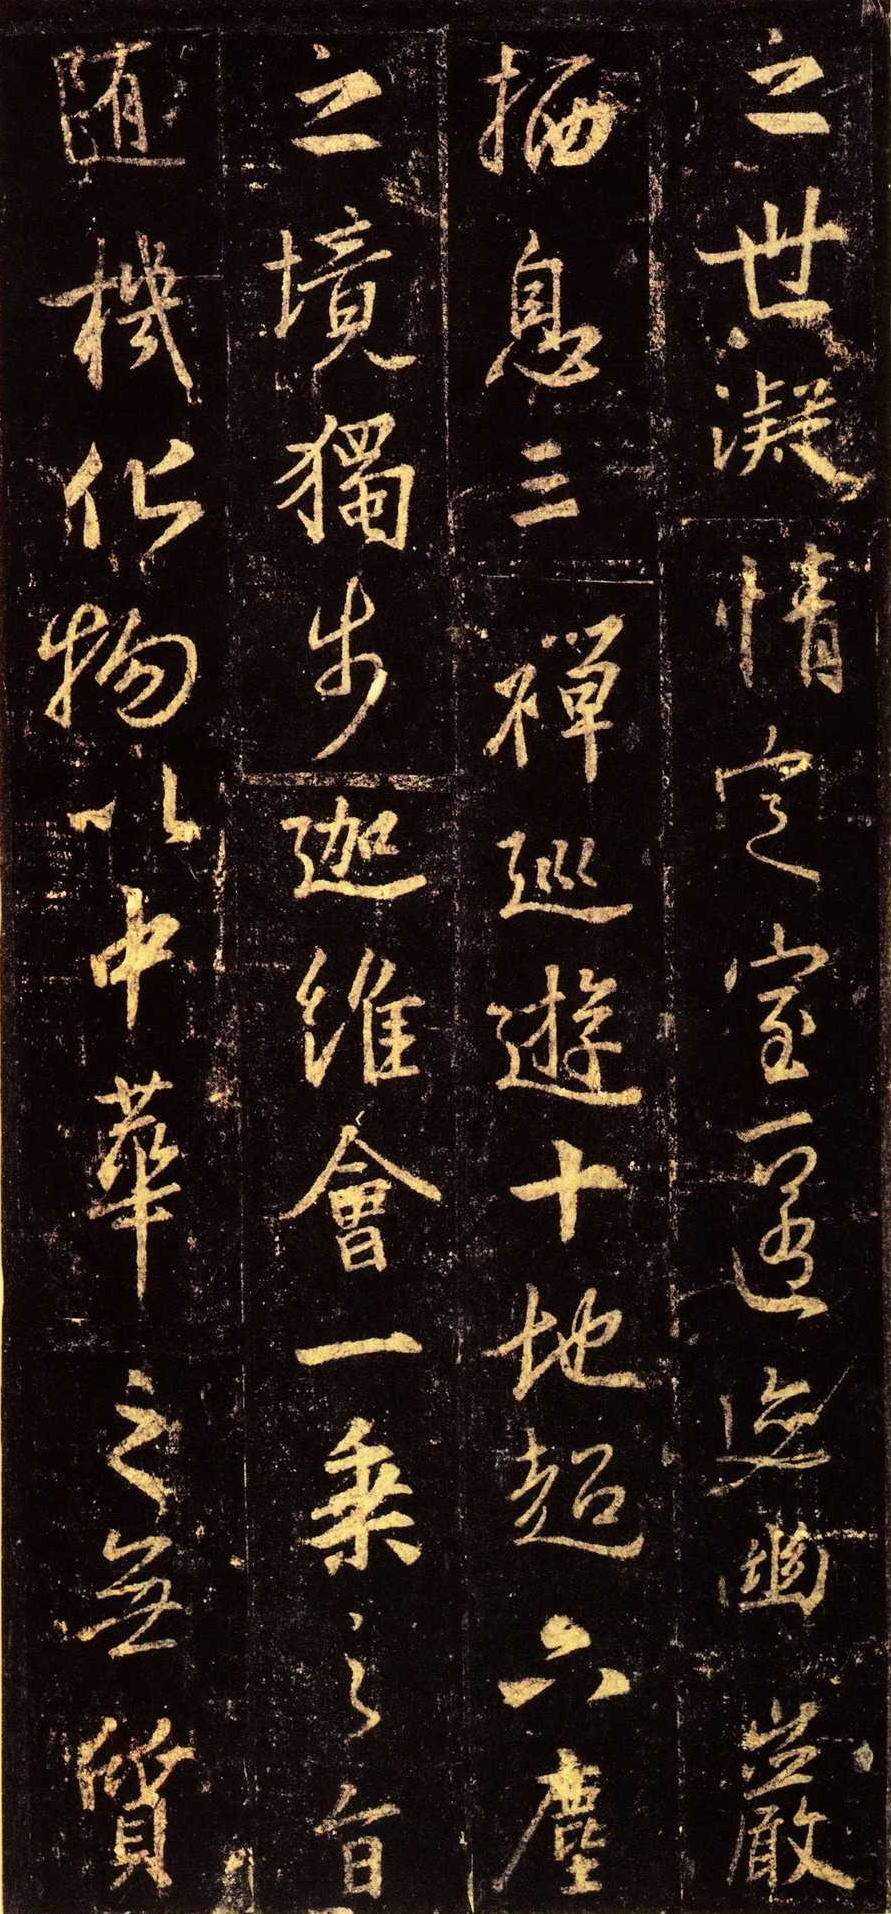 之世凝情定室匿迹幽巖
栖息三禪巡遊十地超六塵
之境獨步迦維會一乘之旨
随機化物以中華之無質